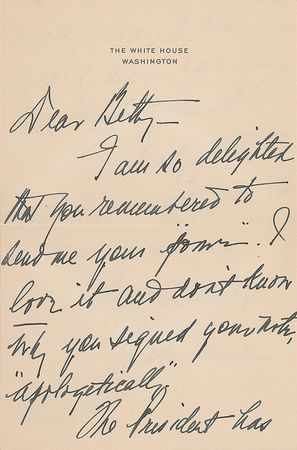 THE WHITE HOUSE
WASHINGTON
Dear Betty—
I am so delighted
that you remembered to
send me your "poem". I
love it and don't know
why you signed your note,
"apologetically".
The President has